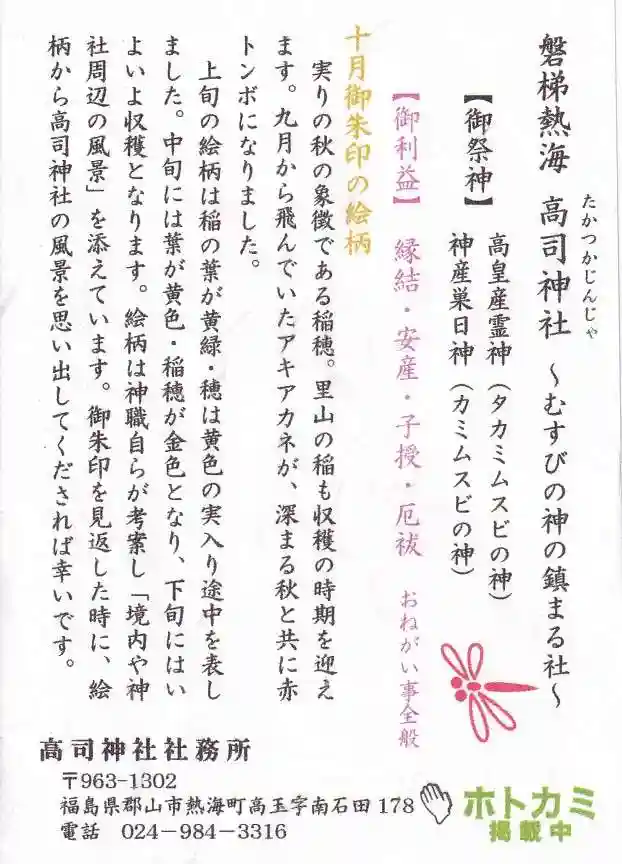 たかつかじんじゃ
磐梯熱海 高司神社 ～むすびの神の鎮まる社～
【御祭神】 高皇産霊神(タカミムスビの神)
神産巣日神(カミムスビの神)
【御利益】 縁結・安産・子授・厄祓 おねがい事全般
十月御朱印の絵柄
実りの秋の象徴である稲穂。里山の稲も収穫の時期を迎え
ます。九月から飛んでいたアキアカネが、深まる秋と共に赤
トンボになりました。
上旬の絵柄は稲の葉が黄緑・穂は黄色の実入り途中を表し
ました。中旬には葉が黄色・稲穂が金色となり、下旬にはい
よいよ収穫となります。絵柄は神職自らが考案し「境内や神
社周辺の風景」を添えています。御朱印を見返した時に、絵
柄から高司神社の風景を思い出してくだされば幸いです。
高司神社社務所
〒963-1302
福島県郡山市熱海町高玉字南石田178
電話 024-984-3316
ホトカミ
掲載中